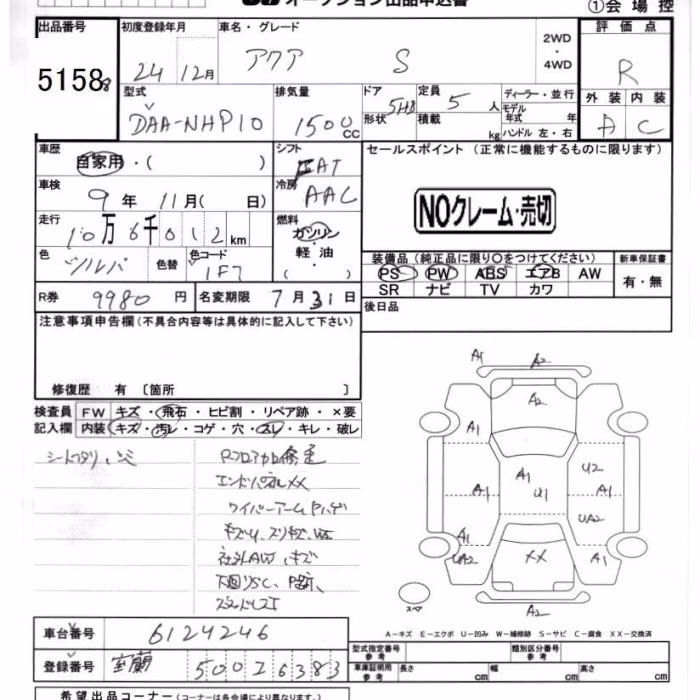 オークション出品申込書
①会場控
出品番号 初度登録年月 車名・グレード 評価点
51588 24 12月 アクア S 2WD・4WD R
型式 排気量 ドア形状 定員 積載 ディーラー・並行 外装 内装
DAA-NHP10 1500CC 5HB 5人 kg モデル年式 年 ハンドル 左・右 A C
車歴 シフト セールスポイント (正常に機能するものに限ります)
自家用・( ) FAT
車検 冷房
9年11月( 日) AAC
NOクレーム・売切
走行 燃料
10万6千012km ガソリン・軽油・( )
色 色替 色コード 装備品 (純正品に限り〇をつけてください) 新車保証書
シルバ 1F7 PS PW ABS エアB AW 有・無
SR ナビ TV カワ
R券 9980円 名変期限 7月31日 後日品
注意事項申告欄 (不具合内容等は具体的に記入して下さい)
修復歴 有 〔箇所 〕
検査員 FW キズ・飛石・ヒビ割・リペア跡・×要
記入欄 内装 キズ・汚レ・コゲ・穴・スレ・キレ・破レ
エンドパネルXX
A1 A2
A2
A1
A1 A1 U1 U2 A1
UA2
A1
UA2 XX A1
A2
スペア
A－キズ E－エクボ U－凹み W－補修跡 S－サビ C－腐食 XX－交換済
車台番号 6124246
登録番号 室蘭 500 そ 6383
型式指定番号 参考 類別区分番号 参考
車庫証明用 参考 長さ cm 幅 cm 高さ cm
希望出品コーナー (コーナーは各会場により異なります。)